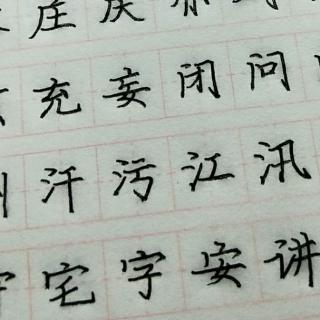 庄庆
充妄闭问
汗污江汛
宅字安讲